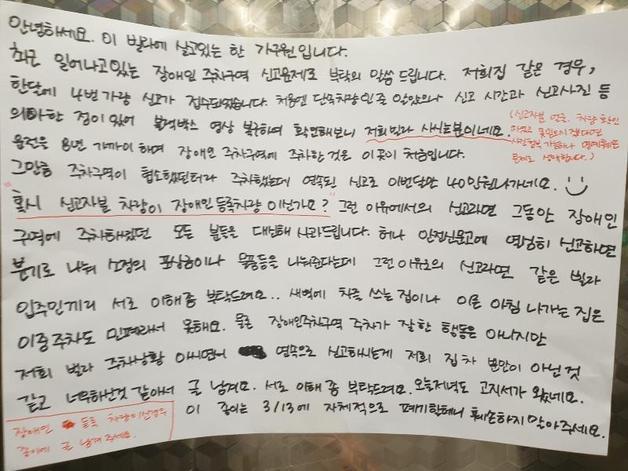 안녕하세요. 이 빌라에 살고있는 한 가구원입니다.
최근 일어나고있는 장애인 주차구역 신고문제로 부탁의 말씀 드립니다. 저희집 같은 경우,
한달에 4번 가량 신고가 접수되었습니다. 처음엔 단속차량인 줄 알았으나 신고 시간과 신고사진 등
의아한 점이 있어 블랙박스 영상 복구하여 확인해보니 저희빌라 사시는분이네요.
(신고자분 얼굴, 차량 확인
사생활
문제로 생략합니다.)
운전은 8년 가까이 하며 장애인 주차구역에 주차한 것은 이곳이 처음입니다.
그만큼 주차구역이 협소했던터라 주차했는데 연속된 신고로 이번달만 40만원나가네요.
"혹시 신고자분 차량이 장애인 등록차량 이신가요?" 그런 이유에서의 신고라면 그동안 장애인
구역에 주차해왔던 모든 분들을 대신해 사과드립니다. 허나 안전신문고에 열심히 신고하면
분기로 나눠 소정의 포상금이나 물품등을 나눠준다는데 그런 이유로의 신고라면 같은 빌라
입주민끼리 서로 이해좀 부탁드려요.. 새벽에 차를 쓰는 집이나 이른 아침 나가는 집은
이중주차도 민폐라서 못해요. 물론 장애인주차구역 주차가 잘한 행동은 아니지만
저희 빌라 주차상황 아시면서 연속으로 신고하시는게 저희 집 차 뿐만이 아닌것
같고 너무하신것 같아서 글 남겨요. 서로 이해 좀 부탁드려요. 오늘저녁도 고지서가 왔네요.
이 종이는 3/13에 자체적으로 폐기할테니 훼손하지 말아주세요.
장애인 등록 차량이신경우
종이에 글 남겨주세요.